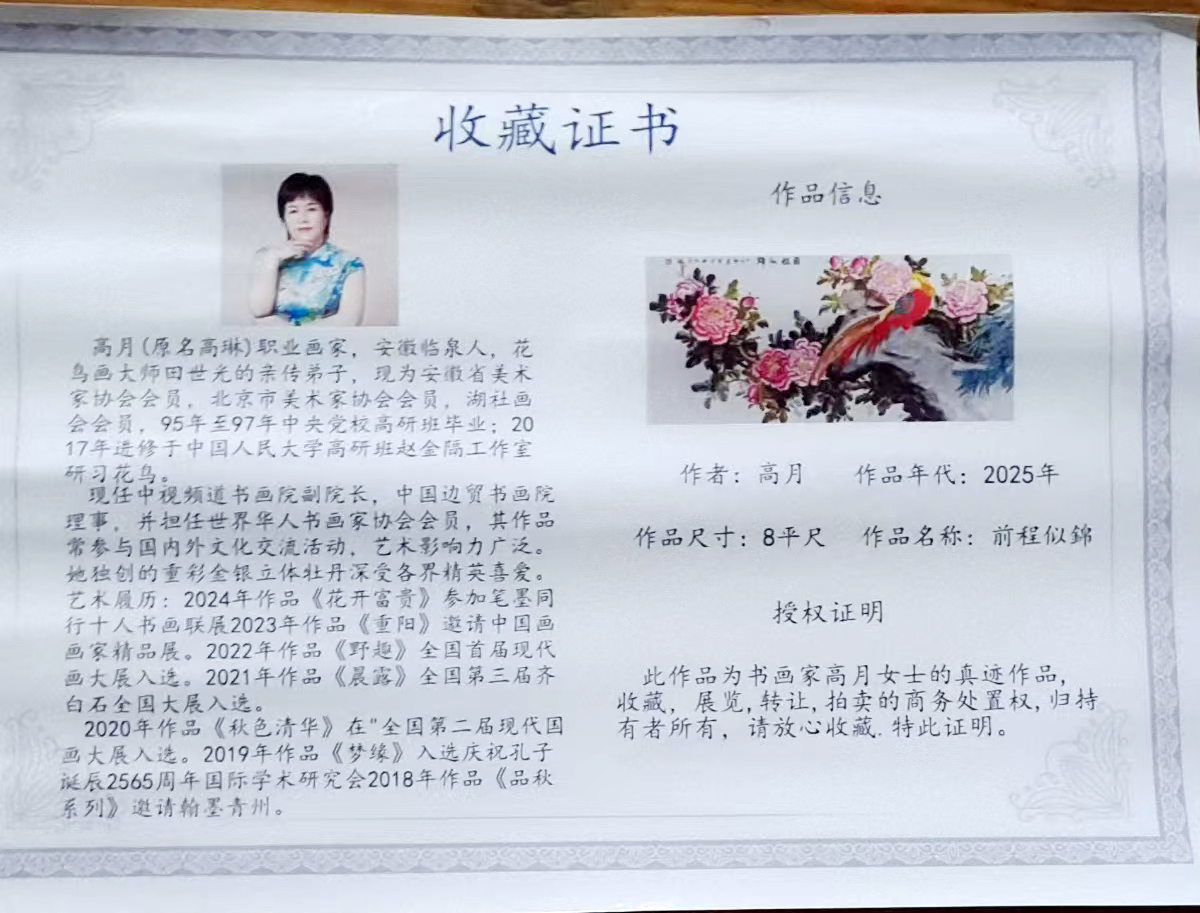 收藏证书
高月(原名高琳)职业画家，安徽临泉人，花
鸟画大师田世光的亲传弟子，现为安徽省美术
家协会会员，北京市美术家协会会员，湖社画
会会员，95年至97年中央党校高研班毕业；20
17年进修于中国人民大学高研班赵金隔工作室
研习花鸟。
现任中视频道书画院副院长，中国边贸书画院
理事，并担任世界华人书画家协会会员，其作品
常参与国内外文化交流活动，艺术影响力广泛。
她独创的重彩金银立体牡丹深受各界精英喜爱。
艺术履历：2024年作品《花开富贵》参加笔墨同
行十人书画联展2023年作品《重阳》邀请中国画
画家精品展。2022年作品《野趣》全国首届现代
画大展入选。2021年作品《晨露》全国第三届齐
白石全国大展入选。
2020年作品《秋色清华》在"全国第二届现代国
画大展入选。2019年作品《梦缘》入选庆祝孔子
诞辰2565周年国际学术研究会2018年作品《品秋
系列》邀请翰墨青州。
作品信息
作者：高月 作品年代：2025年
作品尺寸：8平尺 作品名称：前程似錦
授权证明
此作品为书画家高月女士的真迹作品，
收藏，展览,转让,拍卖的商务处置权,归持
有者所有，请放心收藏.特此证明。